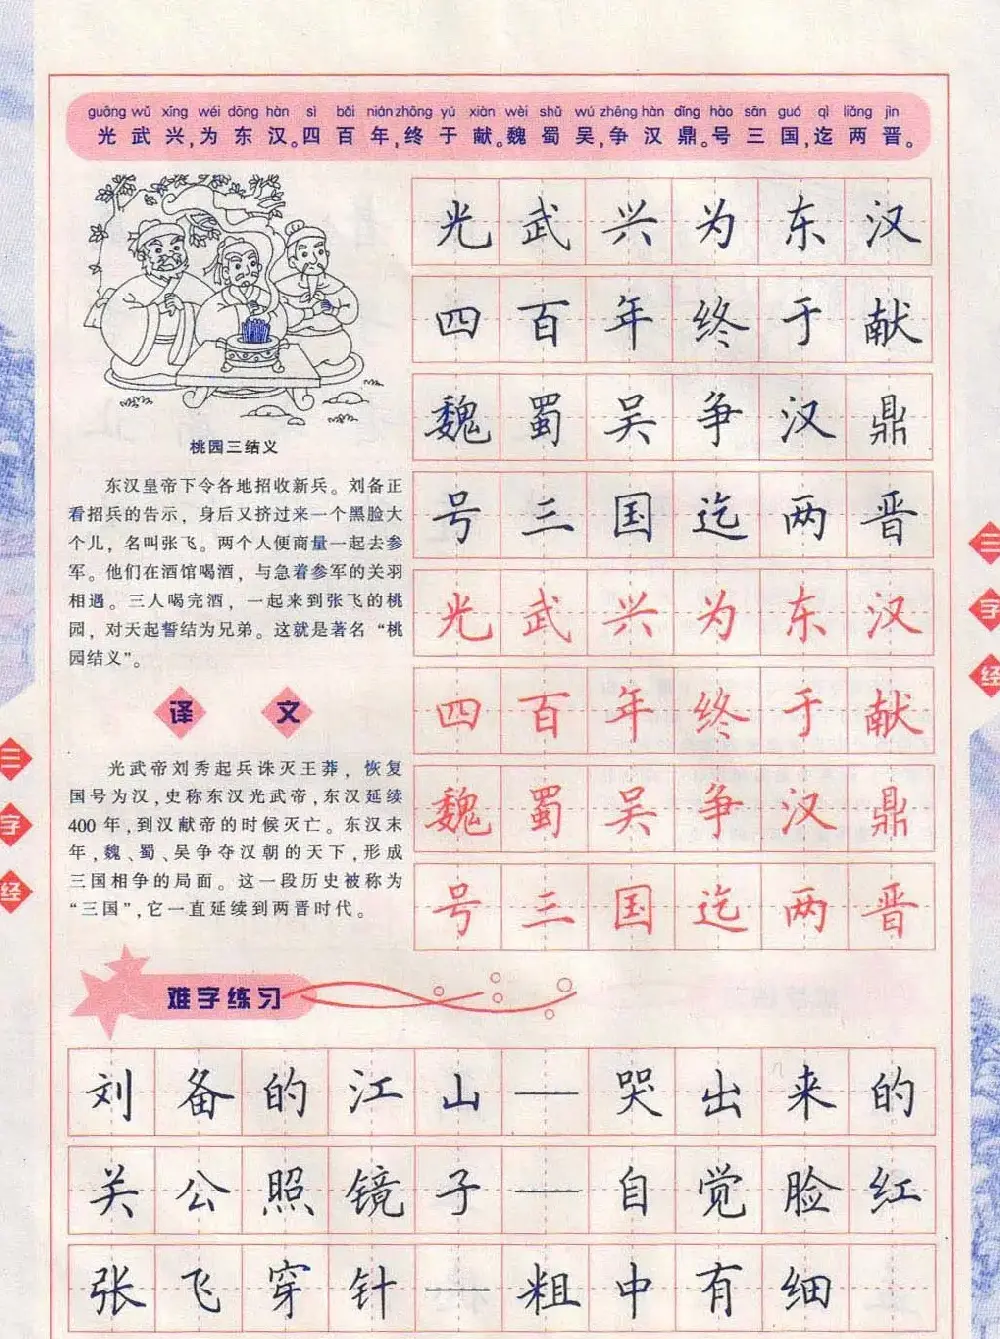 guāng wǔ xīng wéi dōng hàn sì bǎi nián zhōng yú xiàn wèi shǔ wú zhēng hàn dǐng hào sān guó qì liǎng jìn
光武兴,为东汉。四百年,终于献。魏蜀吴,争汉鼎。号三国,迄两晋。
光武兴为东汉
四百年终于献
魏蜀吴争汉鼎
号三国迄两晋
光武兴为东汉
四百年终于献
魏蜀吴争汉鼎
号三国迄两晋
桃园三结义
东汉皇帝下令各地招收新兵。刘备正
看招兵的告示，身后又挤过来一个黑脸大
个儿，名叫张飞。两个人便商量一起去参
军。他们在酒馆喝酒，与急着参军的关羽
相遇。三人喝完酒，一起来到张飞的桃
园，对天起誓结为兄弟。这就是著名“桃
园结义”。
译文
光武帝刘秀起兵诛灭王莽，恢复
国号为汉,史称东汉光武帝,东汉延续
400年,到汉献帝的时候灭亡。东汉末
年,魏、蜀、吴争夺汉朝的天下,形成
三国相争的局面。这一段历史被称为
“三国”,它一直延续到两晋时代。
三字经
三字经
难字练习
刘备的江山——哭出来的
关公照镜子——自觉脸红
张飞穿针——粗中有细